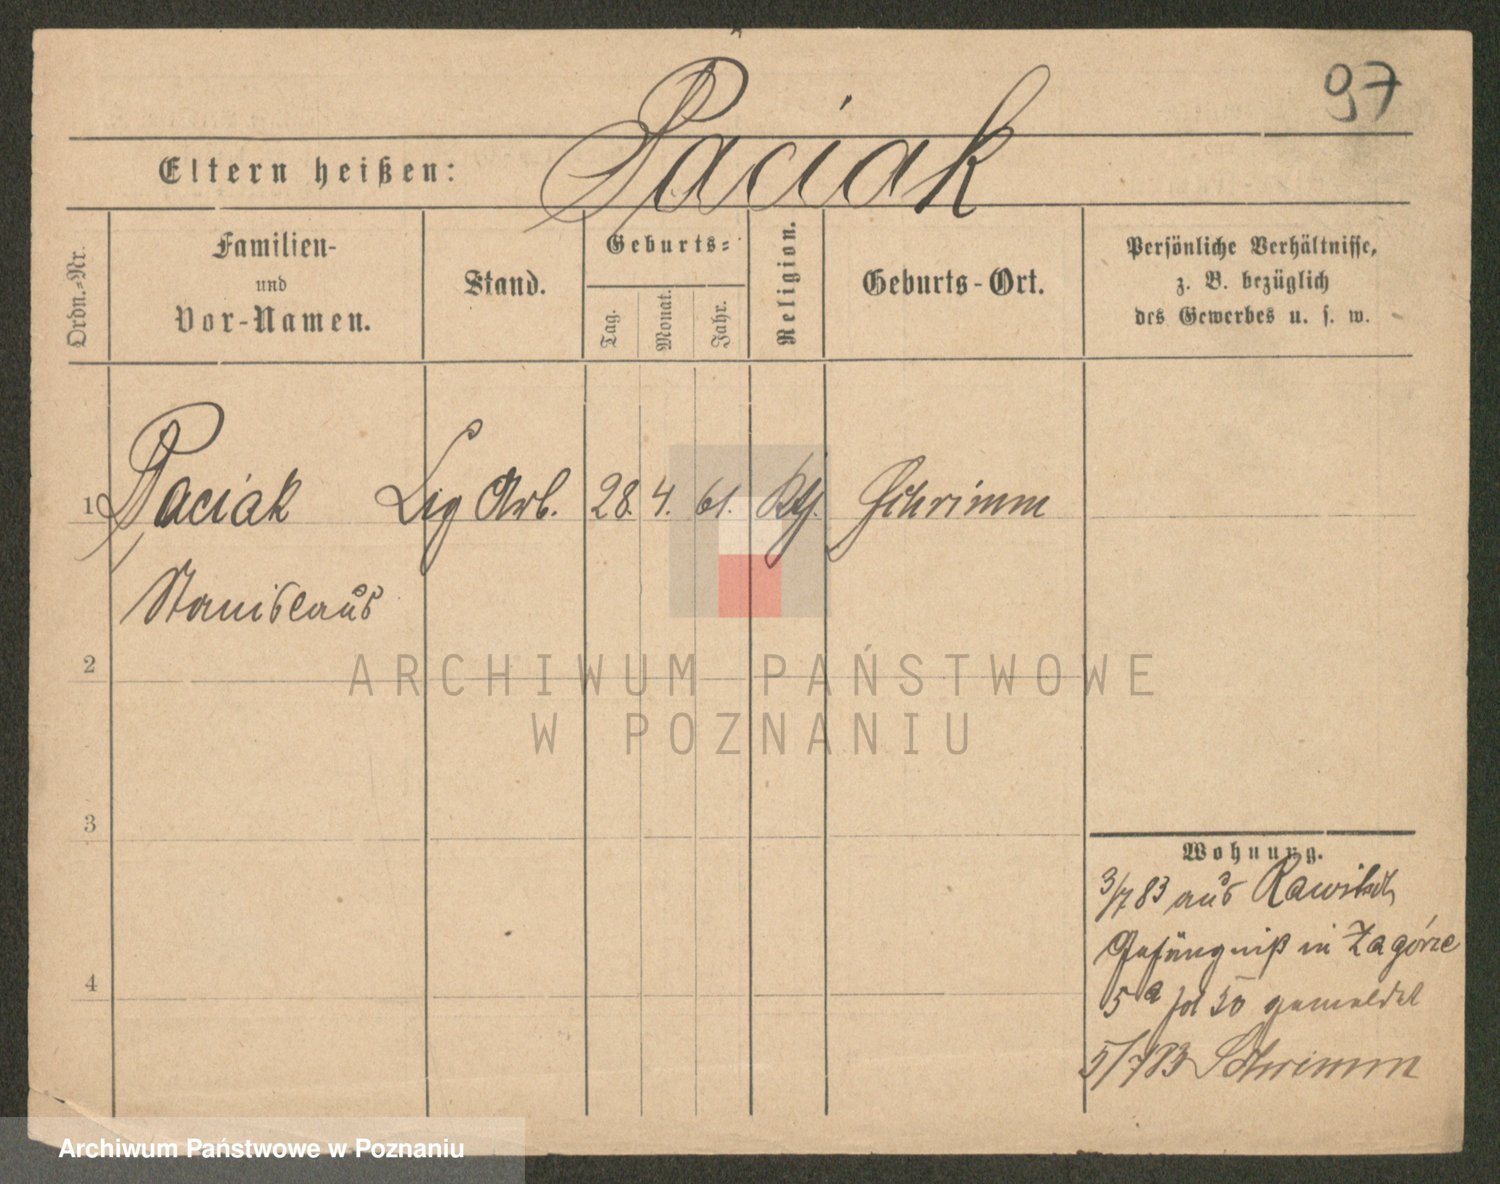 97
Eltern heißen: Paciak
Ordn.-Nr.
Familien-
und
Vor-Namen.
Stand.
Geburts-
Tag.
Monat.
Jahr.
Religion.
Geburts-Ort.
Persönliche Verhältnisse,
z. B. bezüglich
des Gewerbes u. s. w.
1 Paciak Cig Arb. 28. 4. 61. Schrimm
Stanislaus
2
ARCHIWUM PAŃSTWOWE
W POZNANIU
3
Wohnung.
3/7 83 aus Rawitsch
Gefängniß in Zagórze
5a fol 50 gemeldet
4
5/7 83 Schrimm
Archiwum Państwowe w Poznaniu